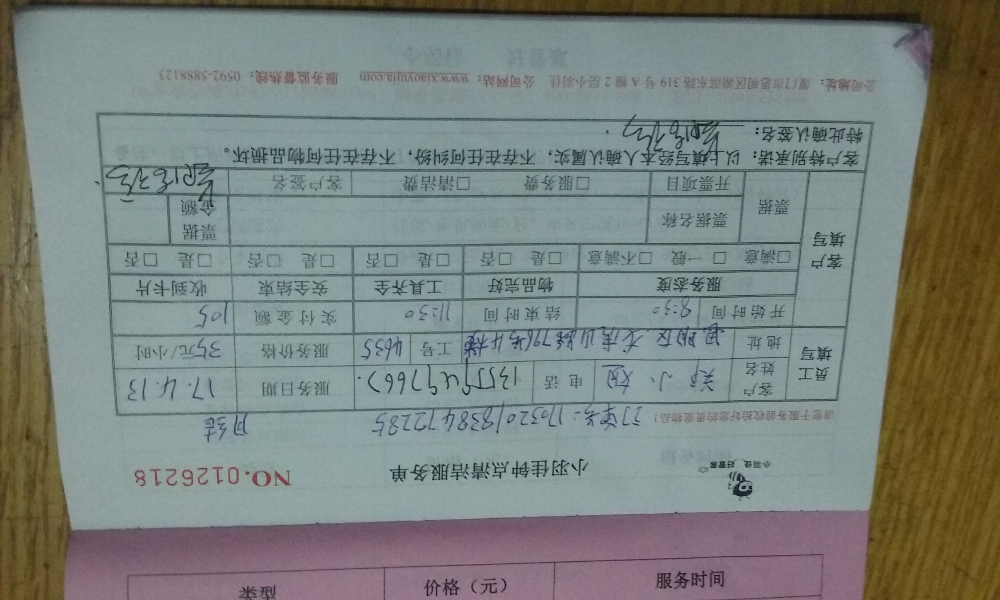 小羽佳.好管家
小羽佳钟点清洁服务单
NO.0126218
请您于服务前收拾好您的贵重物品!
订单号:1703201838472285
月结
员工填写
客户姓名
电话
服务日期
17.4.13
地址
工号
4635
服务价格
35元/小时
开始时间
8:30
结束时间
11:30
实付金额
105
客户填写
服务态度
物品完好
工具齐全
安全结束
收到卡片
□满意 □一般 □不满意
□是 □否
□是 □否
□是 □否
□是 □否
票据
票据名称
票据金额
开票项目
□服务费 □清洁费
客户签名
客户特别承诺:以上填写经本人确认属实,不存在任何纠纷,不存在任何物品损坏。
特此确认签名:
公司地址:厦门市思明区湖滨东路 319 号 A 幢 2 层小羽佳 公司网站:www.xiaoyujia.com 服务监督热线:0592-5888123
类型
价格(元)
服务时间